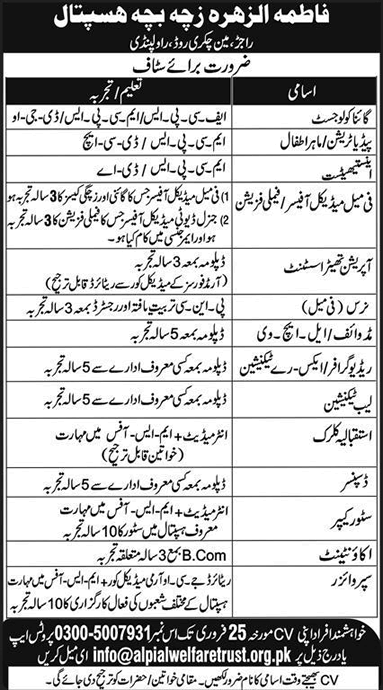 فاطمہ الزھرہ زچہ بچہ ہسپتال
راجڑ، مین چکری روڈ، راولپنڈی
ضرورت برائے سٹاف
اسامی
تعلیم/تجربہ
گائناکولوجسٹ
ایف-سی-پی-ایس/ایم-سی-پی-ایس/ڈی-جی-او
پیڈیاٹریشن/ماہر اطفال
ایم-سی-پی-ایس/ڈی-سی-ایچ
اینستھیٹسٹ
ایم-سی-پی-ایس/ڈی-اے
فی میل میڈیکل آفیسر/فیملی فزیشن
1) فی میل میڈیکل آفیسر جس کا گائنی اور زچگی کیسز کا 3 سالہ تجربہ ہو
2) جنرل ڈیوٹی میڈیکل آفیسر جس کا فیملی فزیشن کا 3 سالہ تجربہ
ہو اور ایمرجنسی میں کام کیا ہو۔
آپریشن تھیٹر اسسٹنٹ
ڈپلومہ بمعہ 3 سالہ تجربہ
(آرمڈ فورسز کے میڈیکل کور سے ریٹائرڈ قابل ترجیح)
نرس (فی میل)
پی-این-سی تربیت یافتہ اور رجسٹرڈ بمعہ 3 سالہ تجربہ
مڈوائف/ایل-ایچ-وی
ڈپلومہ بمعہ 5 سالہ تجربہ
ریڈیوگرافر/ایکس-رے ٹیکنیشین
ڈپلومہ بمعہ کسی معروف ادارے سے 5 سالہ تجربہ
لیب ٹیکنیشین
ڈپلومہ بمعہ کسی معروف ادارے سے 5 سالہ تجربہ
استقبالیہ کلرک
انٹرمیڈیٹ + ایم-ایس-آفس میں مہارت
(خواتین قابل ترجیح)
ڈسپنسر
ڈپلومہ بمعہ کسی معروف ادارے سے 5 سالہ تجربہ
سٹور کیپر
انٹرمیڈیٹ + ایم-ایس-آفس میں مہارت
معروف ہسپتال میں سٹور کا 10 سالہ تجربہ
اکاؤنٹینٹ
B.Com بمع 3 سالہ متعلقہ تجربہ
سپروائزر
ریٹائرڈ جے-سی-او آرمی میڈیکل کور + ایم-ایس-آفس میں مہارت
ہسپتال کے مختلف شعبوں کی فعال کارگزاری کا 10 سالہ تجربہ
خواہشمند افراد اپنی CV مورخہ 25 فروری تک اس نمبر 0300-5007931 پر وٹس ایپ
یا درج ذیل پر info@alpialwelfaretrust.org.pk ای میل کریں
CV بھیجتے وقت اسامی کا نام ضرور لکھیں۔ مقامی خواتین/حضرات کو ترجیح دی جائے گی۔